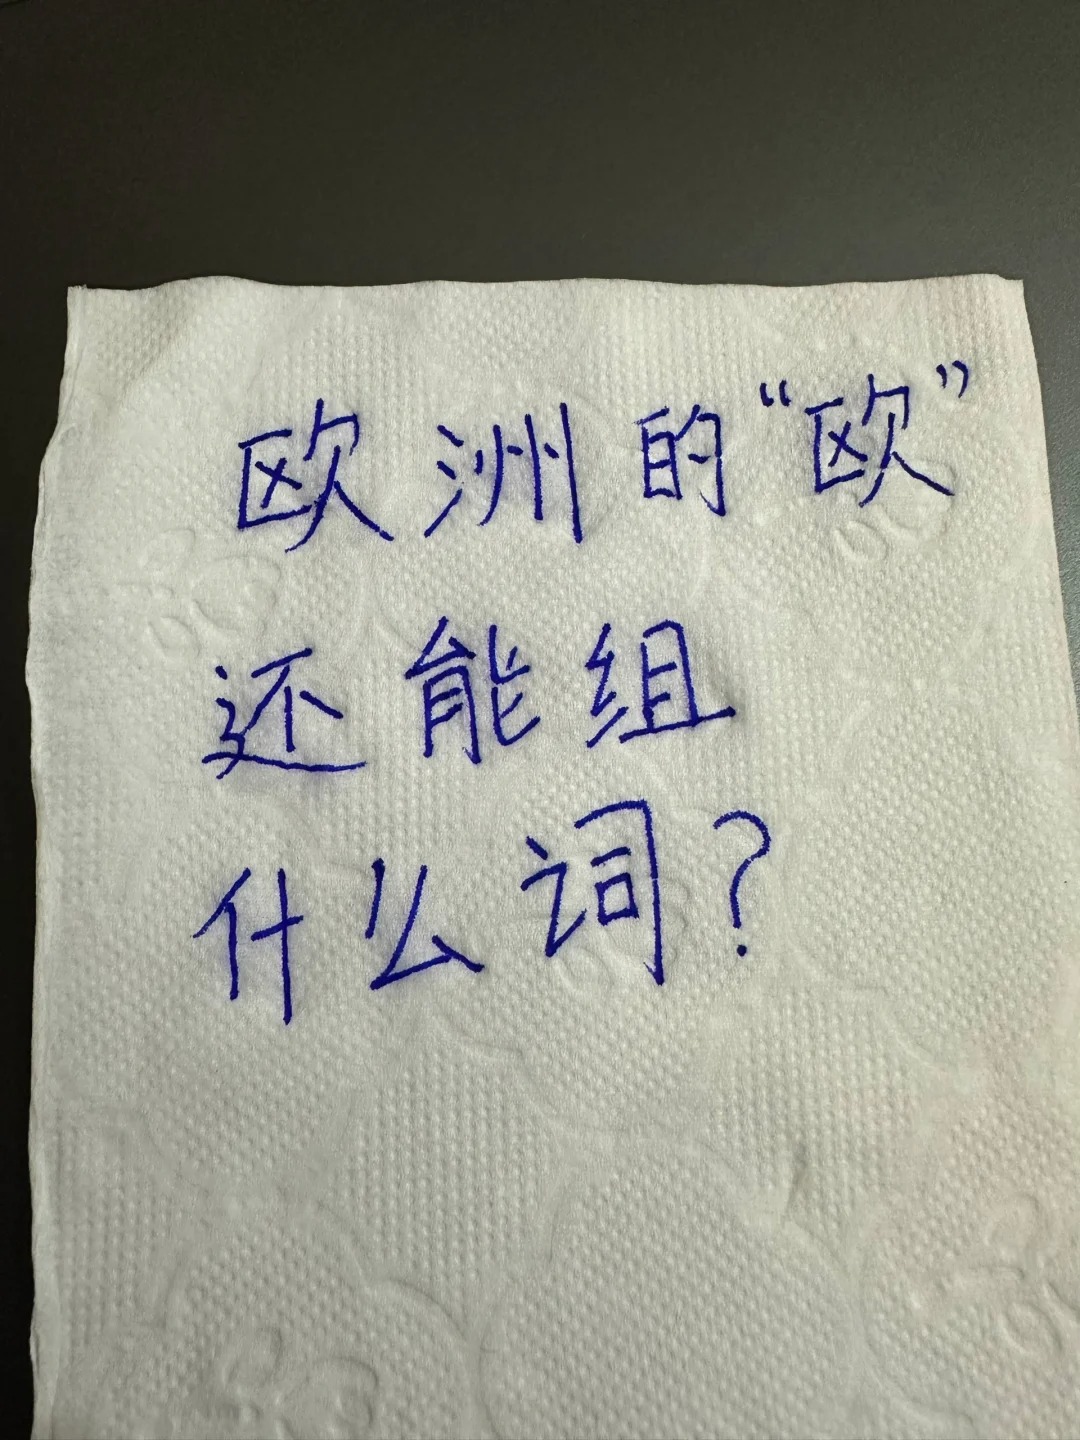 欧洲的“欧”
还能组
什么词？